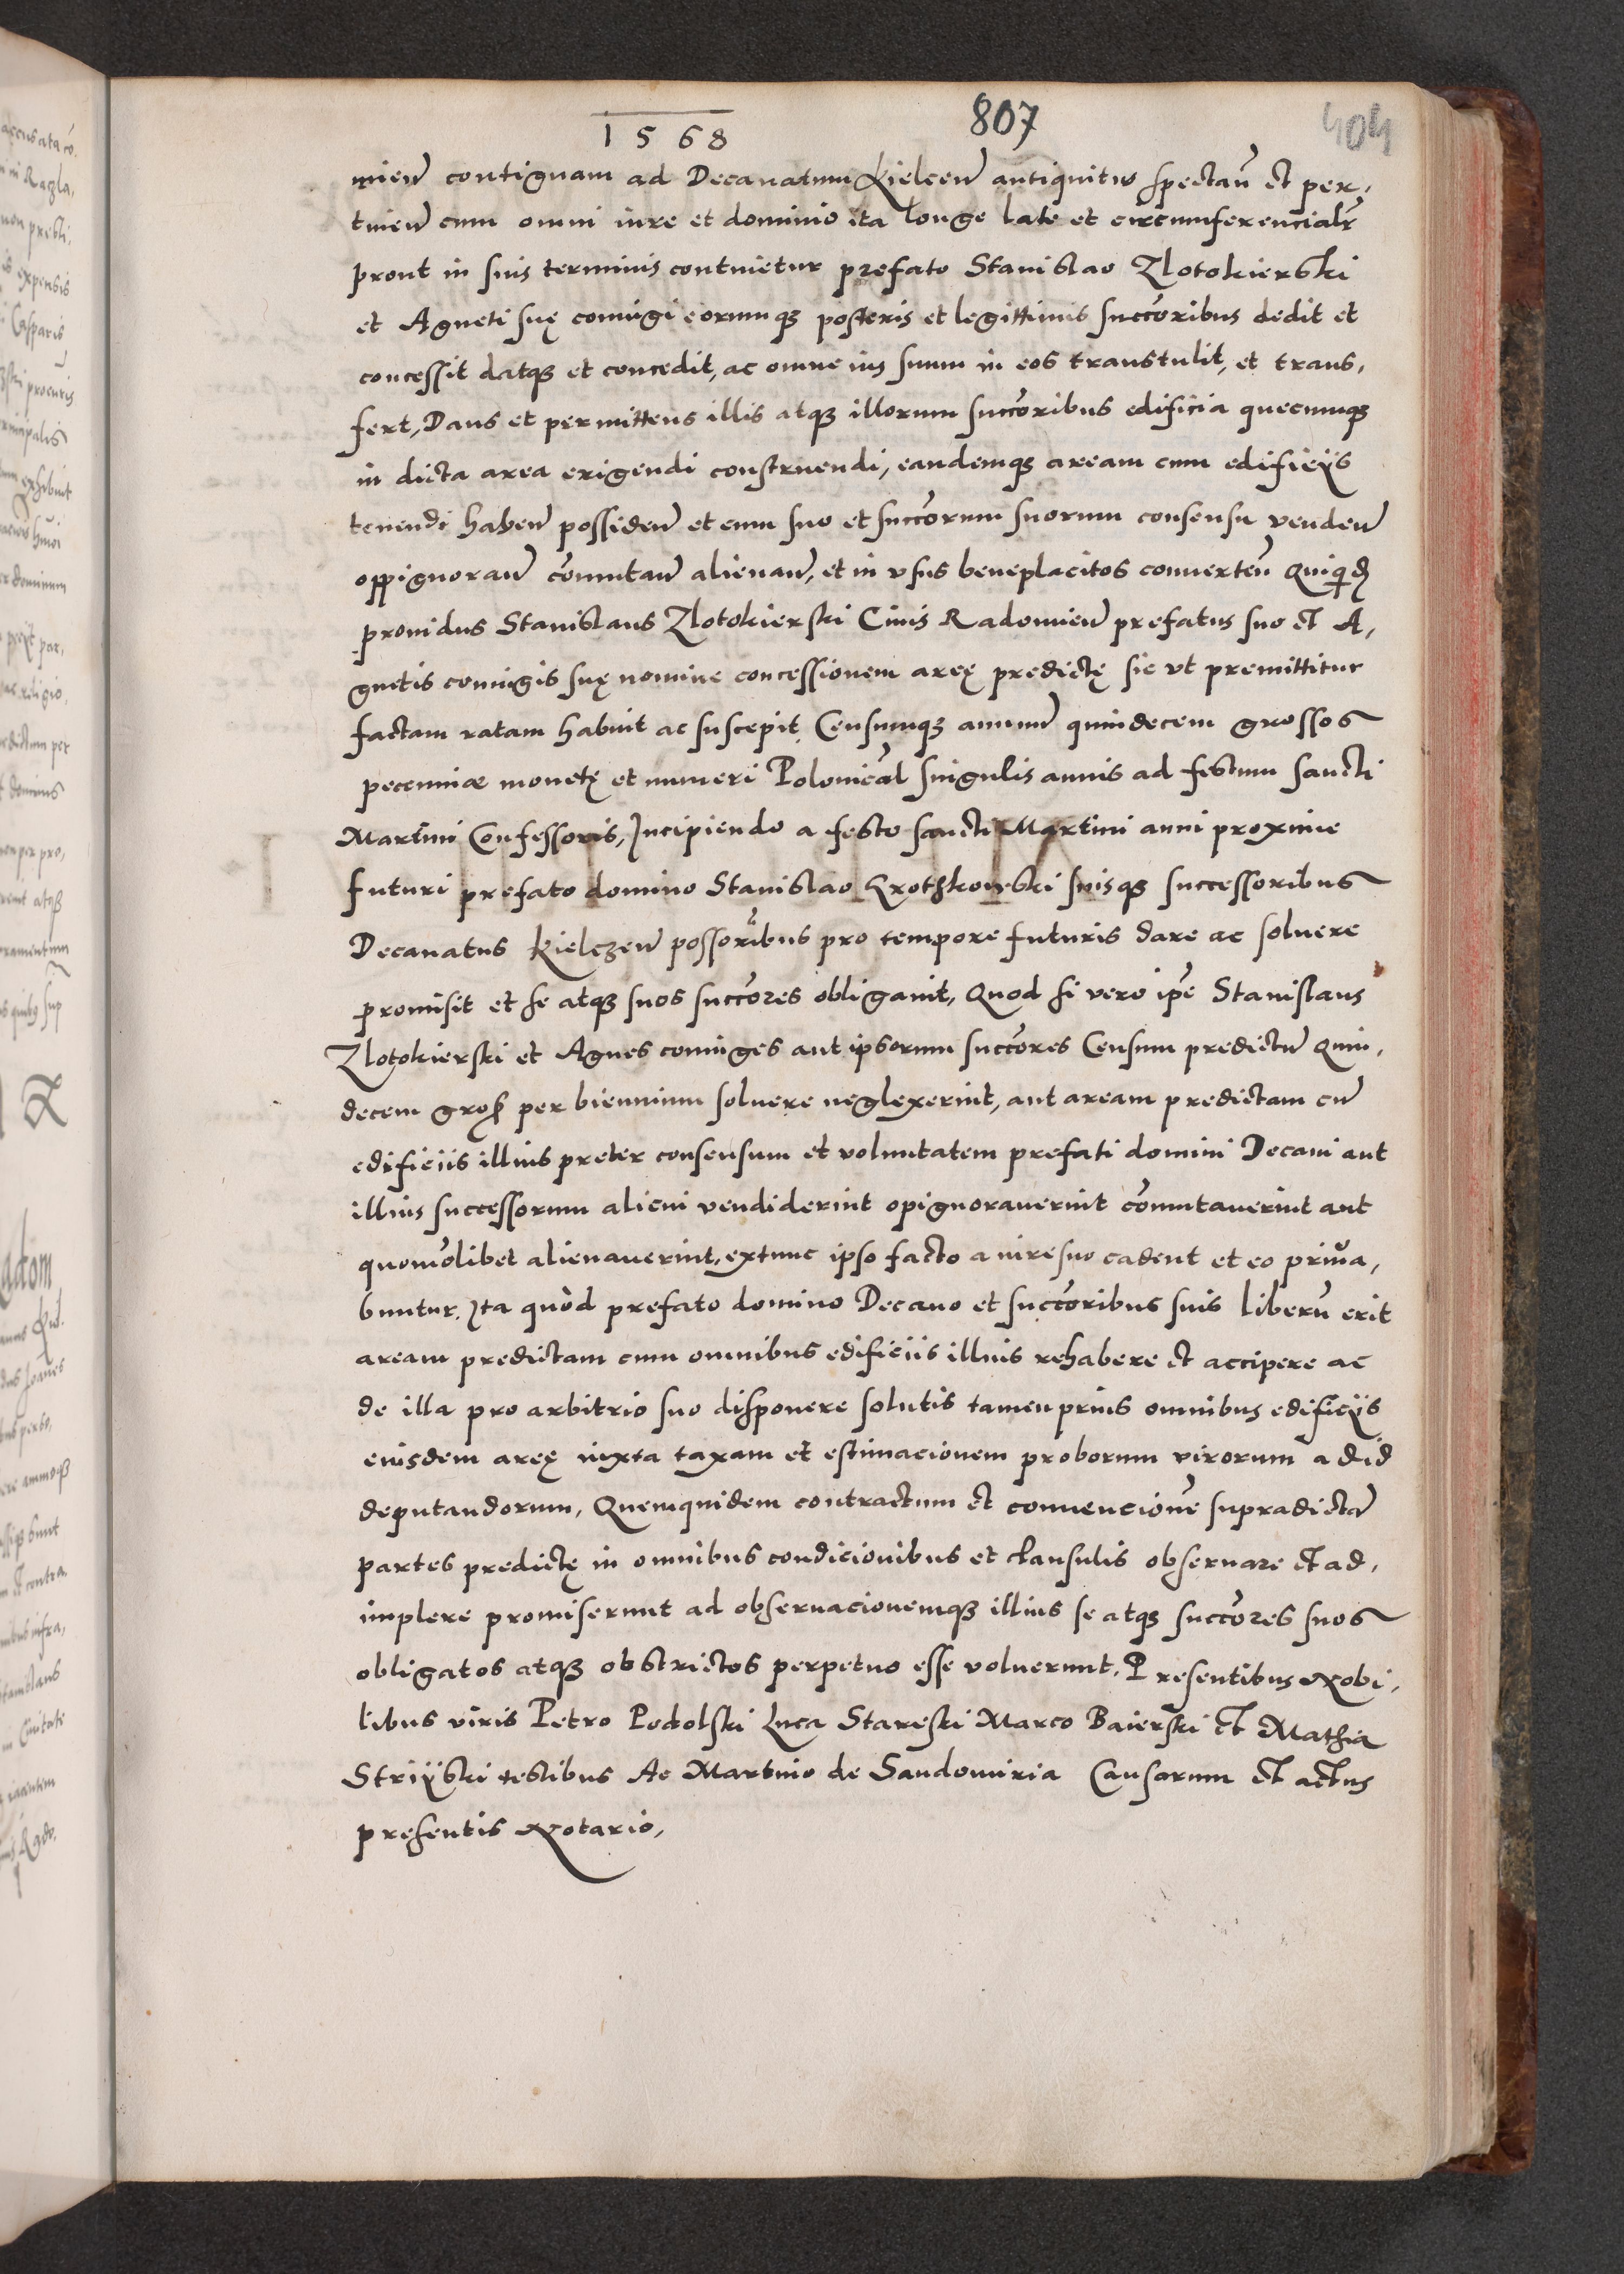 1568
807
404
mien̄ contiguam ad Decanatum Kielcen̄ antiquitus spectan̄ et per,
tinen̄ cum omni iure et dominio ita longe late et circumferencialr̄
prout in suis terminis continetur prefato Stanislao Zlotokierski
et Agneti suę coniugi eorumq₃ posteris et legittimis succōribus dedit et
concessit datq₃ et concedit, ac omne ius suum in eos transtulit, et trans,
fert, Dans et permittens illis atq₃ illorum succōribus edificia quecumq₃
in dicta area erigendi construendi, eandemq₃ aream cum edificijs
tenendi haben̄ possiden̄ et cum suo et succōrum suorum consensu venden̄
oppignoran̄ cōmutan̄ alienan̄, et in vsus beneplacitos conuerten̄ Quiquid̄
prouidus Stanislaus Zlotokierski Ciuis Radomien̄ prefatus suo et A,
gnetis coniugis suę nomine concessionem areę predictę sic vt premittitur
factam ratam habuit ac suscepit, Censumq₃ annuū quindecem grossos
pecuniæ monetę et numeri Polonicāl singulis annis ad festum sancti
Martini Confessoris, Incipiendo a festo sancti Martini anni proxime
futuri prefato domino Stanislao Krothkowski suisq₃ successoribus
Decanatus Kielczen̄ possorībus pro tempore futuris dare ac soluere
promisit et se atq₃ suos succōres obligauit, Quod si vero ip̄e Stanislaus
Zlotokierski et Agnes coniuges aut ipsorum succōres Censum predictū quin,
decem gros̄ per biennium soluere neglexerint, aut aream predictam cū
edificiis illius preter consensum et voluntatem prefati domini Decani aut
illius successorum alicui vendiderint opignorauerint cōmutauerint aut
quomōlibet alienauerint, extunc ipso facto a iure suo cadent et eo priua,
buntur. Ita quòd prefato domino Decano et succōribus suis liberū erit
aream predictam cum omnibus edificiis illius rehabere et accipere ac
de illa pro arbitrio suo disponere solutis tamen prius omnibus edificijs
eiusdem areę iuxta taxam et estimacionem proborum virorum ad id
deputandorum, Quemquidem contractum et conuencionē supradictā
partes predictę in omnibus condicionibus et clausulis obseruare et ad,
implere promiserunt ad obseruacionemq₃ illius se atq₃ succōres suos
obligatos atq₃ obstrictos perpetuo esse voluerunt. Presentibus Nobi,
libus viris Petro Podolski Luca Stareski Marco Baierski et Mathia
Strijski testibus Ac Martino de Sandomiria Causarum et actus
presentis Notario,